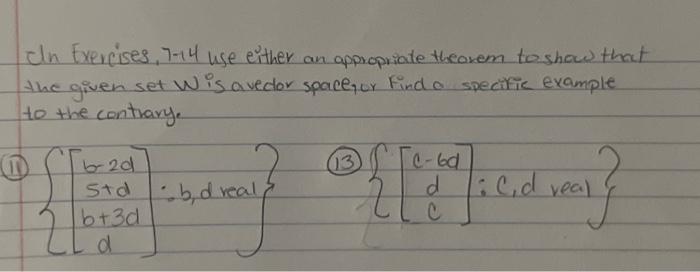 In Exercises, 7-14 use either an appropriate theorem to show that
the given set W is a vector space, or Find a specific example
to the contrary.
11 { [ b-2d
5+d
b+3d
d ] : b, d real }
13 { [ c-6d
d
c ] : c, d real }